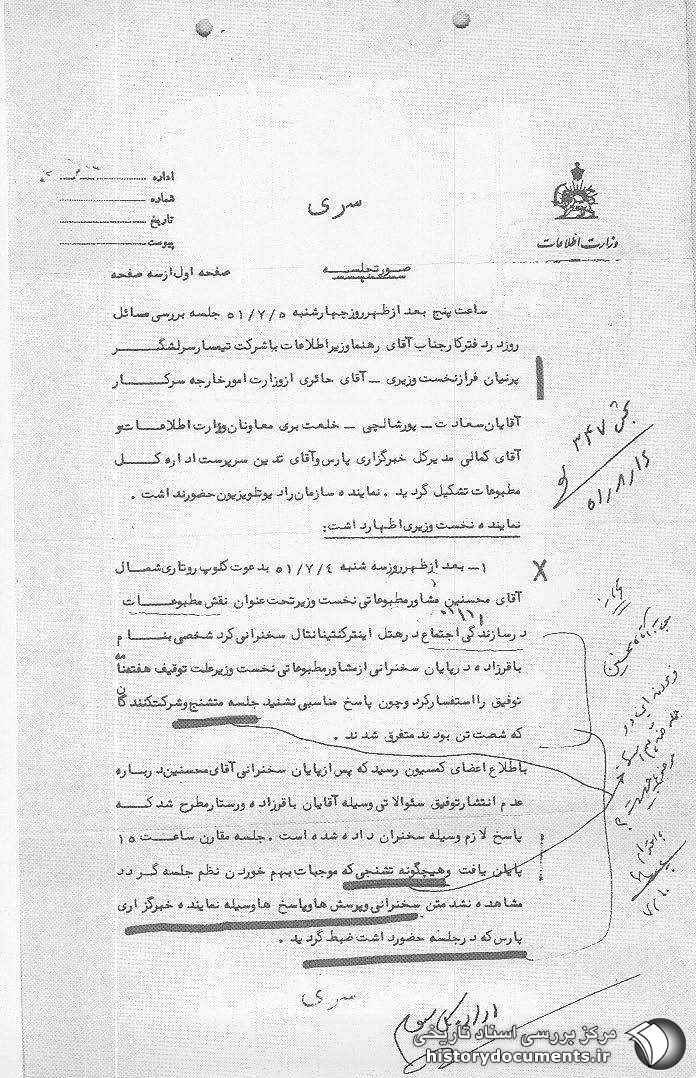 اداره
شماره
تاریخ
پیوست
سری
وزارت اطلاعات
صورتجلسه
صفحه اول از سه صفحه
ساعت پنج بعد از ظهر روز چهارشنبه ۵۱/۷/۵ جلسه بررسی مسائل
روز در دفتر کار جناب آقای رهنما وزیر اطلاعات با شرکت تیمسار سرلشگر
پرنیان فر از نخست وزیری ـ آقای حائری از وزارت امور خارجه سرکار
آقایان سعادت ـ پورشالچی ـ خلعت بری معاونان وزارت اطلاعات و
آقای کمالی مدیر کل خبرگزاری پارس و آقای تدین سرپرست اداره کل
مطبوعات تشکیل گردید . نماینده سازمان رادیو تلویزیون حضور نداشت .
نماینده نخست وزیری اظهار داشت :
۱ـ بعد از ظهر روز سه شنبه ۵۱/۷/۴ بدعوت کلوپ روتاری شمال
آقای محسنین مشاور مطبوعاتی نخست وزیر تحت عنوان نقش مطبوعات
در سازندگی اجتماع در هتل اینترکنتیناننتال سخنرانی کرد شخصی بنام
باقرزاده در پایان سخنرانی از مشاور مطبوعاتی نخست وزیر علت توقیف هفته نامه
توفیق را استفسار کرد و چون پاسخ مناسبی نشنید جلسه متشنج و شرکت کنندگان
که شصت تن بودند متفرق شدند .
باطلاع اعضای کمسیون رسید که پس از پایان سخنرانی آقای محسنین درباره
عدم انتشار توفیق سئوالاتی وسیله آقایان باقرزاده و رستار مطرح شد که
پاسخ لازم وسیله سخنران داده شده است . جلسه مقارن ساعت ۱۵
پایان یافت و هیچگونه تشنجی که موجبات بهم خوردن نظم جلسه گردد
مشاهده نشد متن سخنرانی و پرسش ها و پاسخ ها وسیله نماینده خبرگزاری
پارس که در جلسه حضور داشت ضبط گردید .
سری
بخش ۳۴۷
اداره کل سوم
مرکز بررسی اسناد تاریخی
historydocuments.ir